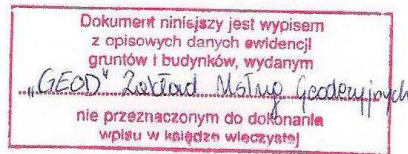 Dokument niniejszy jest wypisem
z opisowych danych ewidencji
gruntów i budynków, wydanym
„GEOD" Zakład Usług Geodezyjnych
nie przeznaczonym do dokonania
wpisu w księdze wieczystej